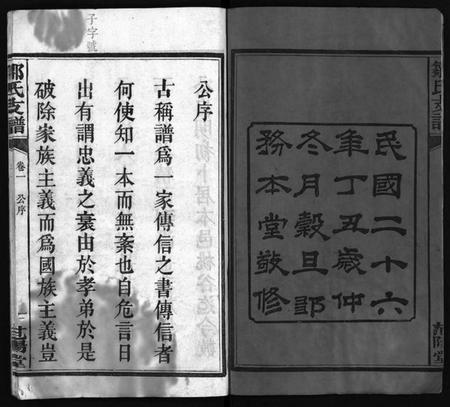 民國二十六
年丁丑歲仲
冬月穀旦鄒
務本堂敬修
鄒氏支譜
范陽堂
子字號
公序
古稱譜爲一家傳信之書傳信者
何使知一本而無紊也自危言日
出有謂忠義之衰由於孝弟於是
破除家族主義而爲國族主義豈
鄒氏支譜
卷一
公序
范陽堂